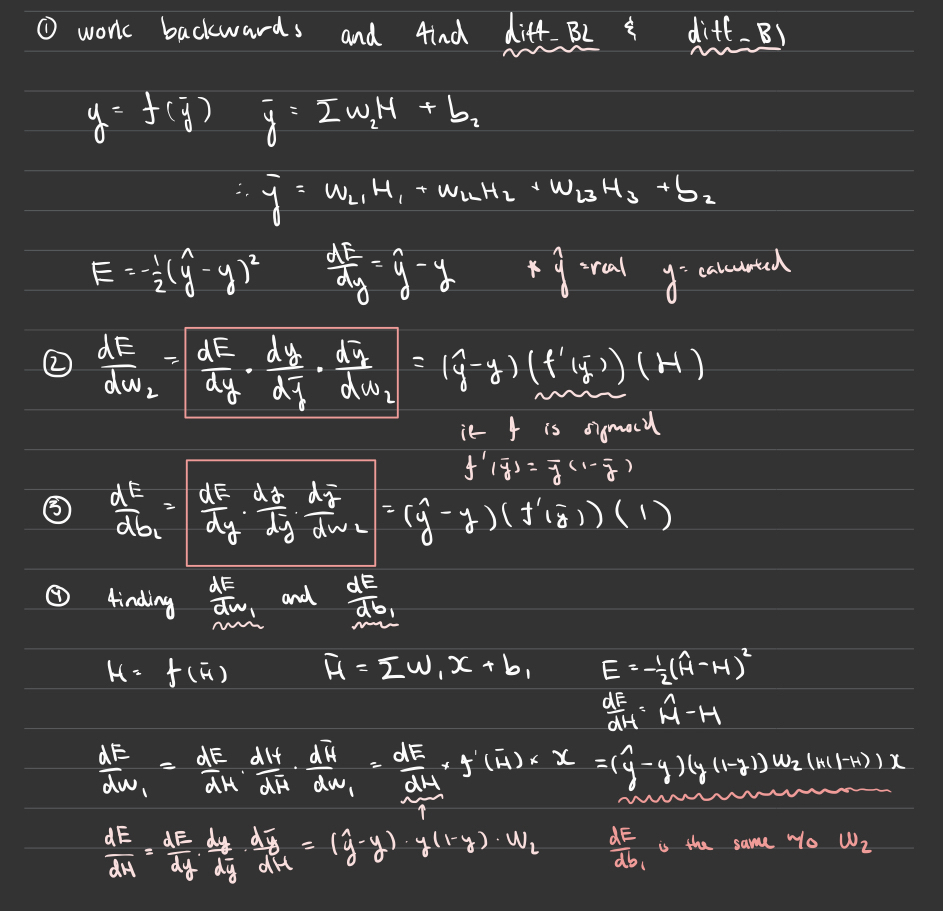 ① work backwards and find diff_B2 & diff_B1
y = f(ȳ) ȳ = Σw₂H + b₂
∴ ȳ = w₂₁H₁ + w₂₂H₂ + w₂₃H₃ + b₂
E = -½(ŷ - y)² dE/dy = ŷ - y * ŷ = real y = calculated
② dE/dw₂ = dE/dy · dy/dȳ · dȳ/dw₂ = (ŷ-y)(f'(ȳ))(H)
if f is sigmoid
f'(ȳ) = ȳ(1-ȳ)
③ dE/db₂ = dE/dy · dy/dȳ · dȳ/dw₂ = (ŷ - y)(f'(ȳ))(1)
④ finding dE/dw₁ and dE/db₁
H = f(H̄) H̄ = Σw₁x + b₁ E = -½(Ĥ-H)²
dE/dH = Ĥ - H
dE/dw₁ = dE/dH · dH/dH̄ · dH̄/dw₁ = dE/dH * f'(H̄) * x = (ŷ-y)(y(1-y))w₂(H(1-H))x
dE/dH = dE/dy · dy/dȳ · dȳ/dH = (ŷ-y) · y(1-y) · w₂ dE/db₁ is the same w/o w₂